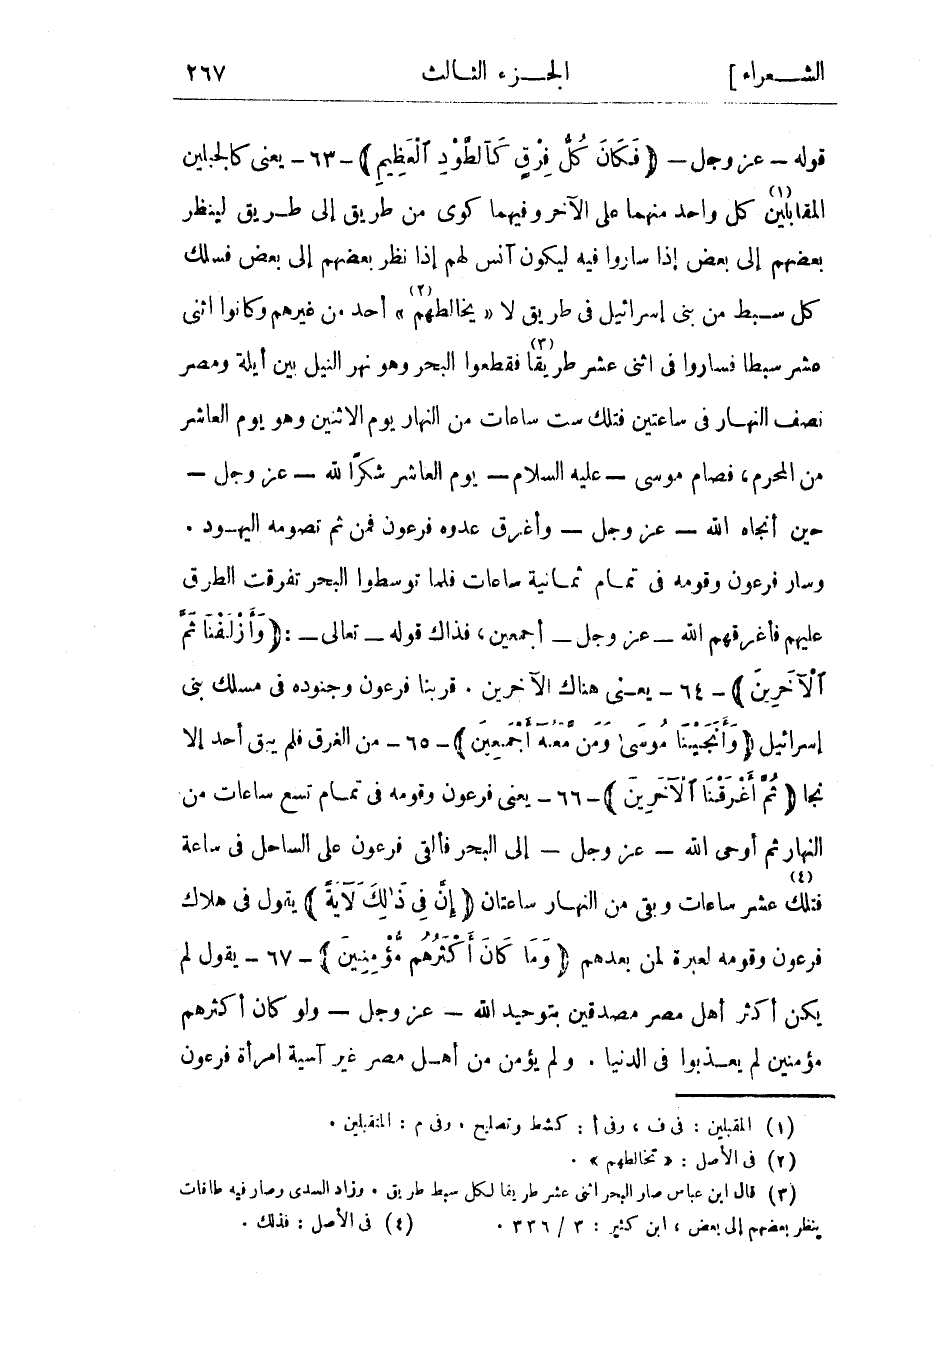 الشعراء] الجزء الثالث ٢٦٧
قوله — عز وجل — ﴿ فَكَانَ كُلُّ فِرْقٍ كَٱلطَّوْدِ ٱلْعَظِيمِ ﴾ — ٦٣ — يعنى كالجبلين
المقابلين (١) كل واحد منهما على الآخر وفيهما كوى من طريق إلى طريق لينظر
بعضهم إلى بعض إذا ساروا فيه ليكون آنس لهم إذا نظر بعضهم إلى بعض فسلك
كل سبط من بنى إسرائيل فى طريق لا « يخالطهم (٢) » أحد من غيرهم وكانوا اثنى
عشر سبطا فساروا فى اثنى عشر طريقا (٣) فقطعوا البحر وهو نهر النيل بين أيلة ومصر
نصف النهار فى ساعتين فتلك ست ساعات من النهار يوم الاثنين وهو يوم العاشر
من المحرم، فصام موسى — عليه السلام — يوم العاشر شكرًا لله — عز وجل —
حين أنجاه الله — عز وجل — وأغرق عدوه فرعون فمن ثم تصومه اليهود .
وسار فرعون وقومه فى تمام ثمانية ساعات فلما توسطوا البحر تفرقت الطرق
عليهم فأغرقهم الله — عز وجل — أجمعين، فذاك قوله — تعالى — : ﴿ وَأَزْلَفْنَا ثَمَّ
ٱلْآخَرِينَ ﴾ — ٦٤ — يعنى هناك الآخرين . قربنا فرعون وجنوده فى مسلك بنى
إسرائيل ﴿ وَأَنجَيْنَا مُوسَىٰ وَمَن مَّعَهُ أَجْمَعِينَ ﴾ — ٦٥ — من الغرق فلم يبق أحد إلا
نجا ﴿ ثُمَّ أَغْرَقْنَا ٱلْآخَرِينَ ﴾ — ٦٦ — يعنى فرعون وقومه فى تمام تسع ساعات من
النهار ثم أوحى الله — عز وجل — إلى البحر فألقى فرعون على الساحل فى ساعة
فتلك (٤) عشر ساعات وبقى من النهار ساعتان ﴿ إِنَّ فِى ذَٰلِكَ لَآيَةً ﴾ يقول فى هلاك
فرعون وقومه لعبرة لمن بعدهم ﴿ وَمَا كَانَ أَكْثَرُهُم مُّؤْمِنِينَ ﴾ — ٦٧ — يقول لم
يكن أكثر أهل مصر مصدقين بتوحيد الله — عز وجل — ولو كان أكثرهم
مؤمنين لم يعذبوا فى الدنيا . ولم يؤمن من أهل مصر غير آسية امرأة فرعون
(١) المقبلين : فى ف ، وفى أ : كشط وتصليح . وفى م : المتقبلين .
(٢) فى الأصل : « تخالطهم » .
(٣) قال ابن عباس صار البحر اثنى عشر طريقا لكل سبط طريق . وزاد السدى وصار فيه طاقات
ينظر بعضهم إلى بعض ، ابن كثير : ٣ / ٣٣٦ . (٤) فى الأصل : فذلك .